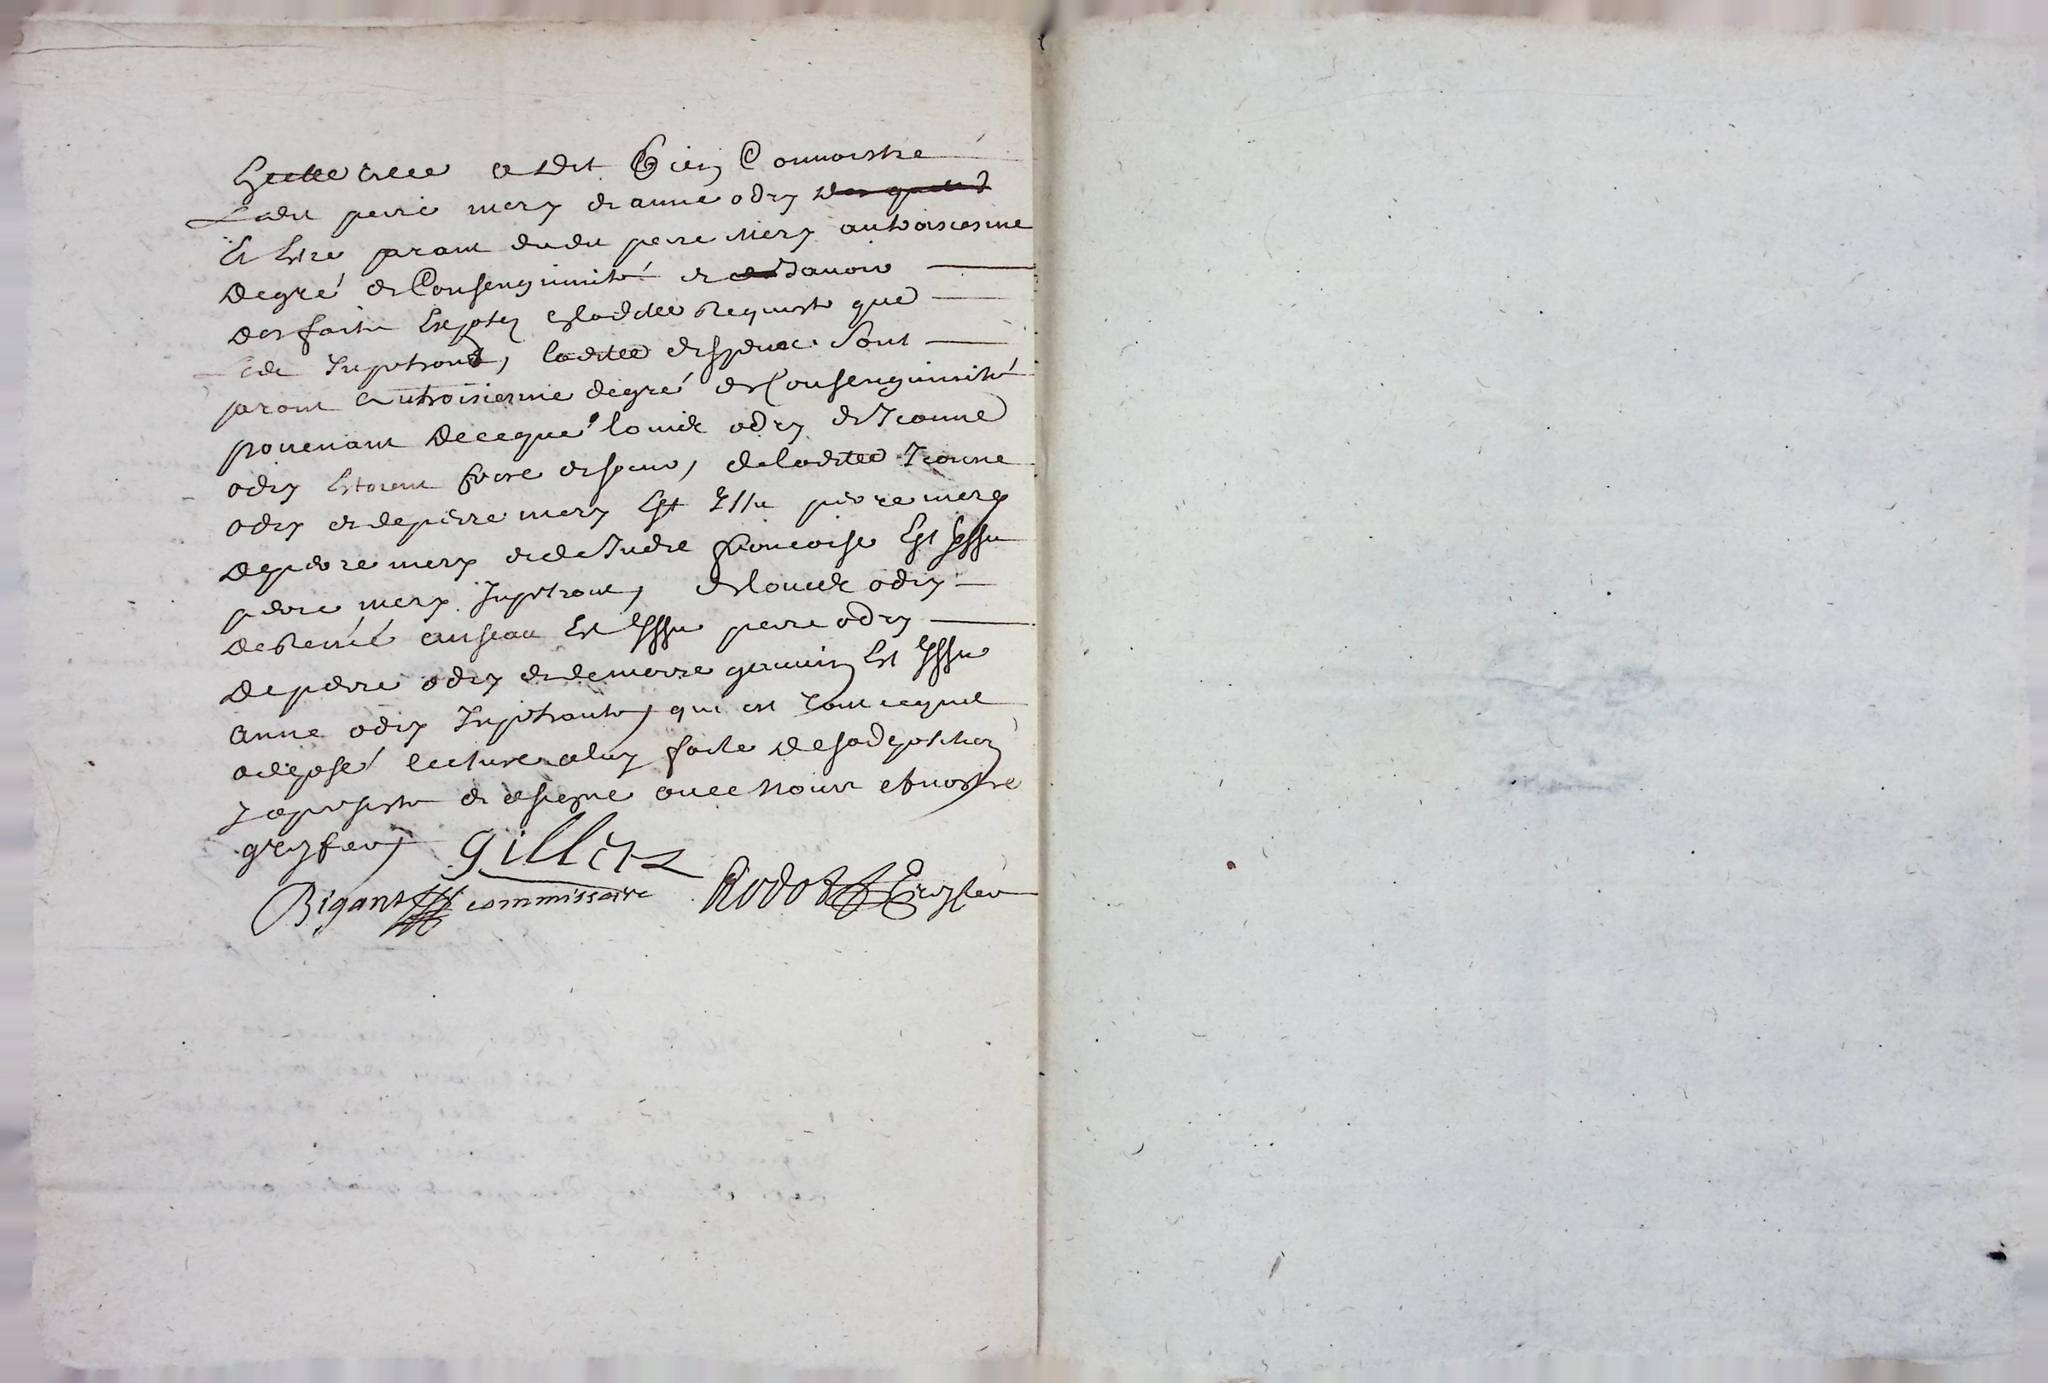 icelle a dit bien Connoistre
Ledit pierre mery et anne odry
Et Estre parant dudit pierre Mery autroiziesme
Degré de Consenguinité et Sauoir
des faits Exposez En ladite Requeste que
Ledit Inpetrant, ladite espouze Sont
parant autroisiesme degré de Consenguinité
prouenant de ceque louis odry et Jeanne
odry Estoient frere et soeur, de ladite Jeanne
odry et de pierre mery Est Issu pierre mery
de pierre mery et de Andre francoise Est Issu
pierre mery Inpetrant, de louis odry
de Renée anseau Est Issu pierre odry
de pierre odry et de marie germain Est Issu
anne odry Inpetrante, qui est tout ce quil
a deposé lecture a luy faite de sa deposition
y a persisté et a signé auec Nous et nostre
greffier
gilles
Bigant commissaire Rodot Greffier